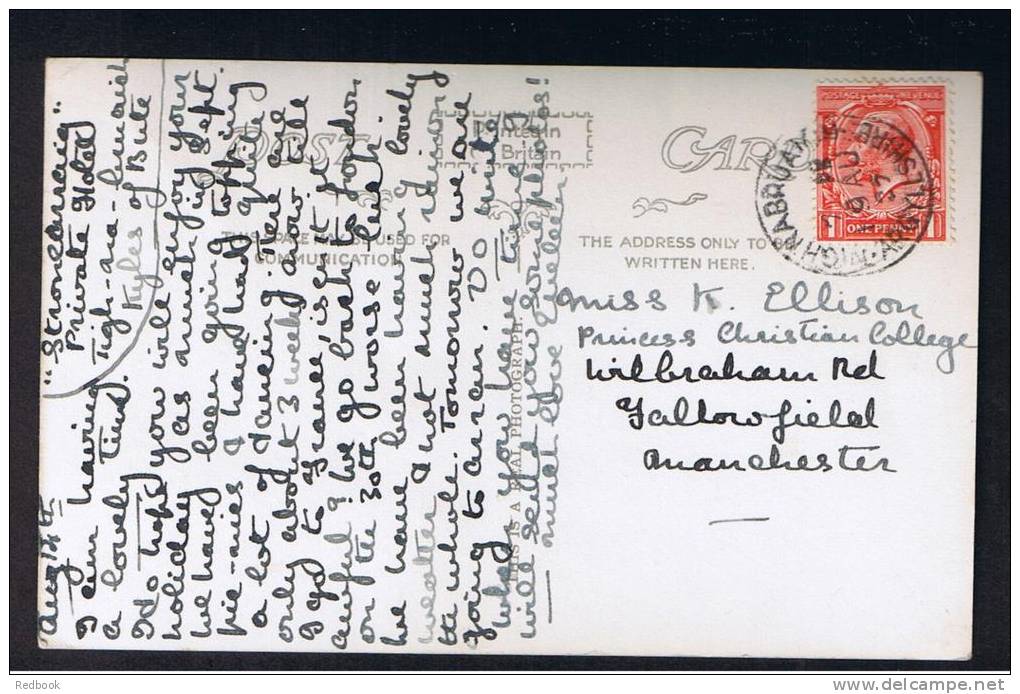 "Stronecarraig"
Private Hotel
Tigh-na-bruaich
Kyles of Bute
Aug 14th
I am having
a lovely time.
I do hope you will enjoy your
holiday as much in Sept.
We have been going
pic-nics & have had topping
a lot of dancing. There are
only about 3 weeks now till
I go to France, isn't it
awful? We go back to London
on the 30th worse luck!
We have been having lovely
weather & not much rain on
the whole. Tomorrow we are
going to Arran. Do write
when you have time and I
will send you some photos!
much love
POST CARD
Printed in
Britain
THIS SPACE MAY BE USED FOR
COMMUNICATION
THE ADDRESS ONLY TO
WRITTEN HERE.
THIS IS A REAL PHOTOGRAPH.
POSTAGE REVENUE
ONE PENNY
TIGHNABRUAICH
ARGYLLSHIRE
Miss K. Ellison
Princess Christian College
Wilbraham Rd
Fallowfield
Manchester
Redbook
delcampe.net